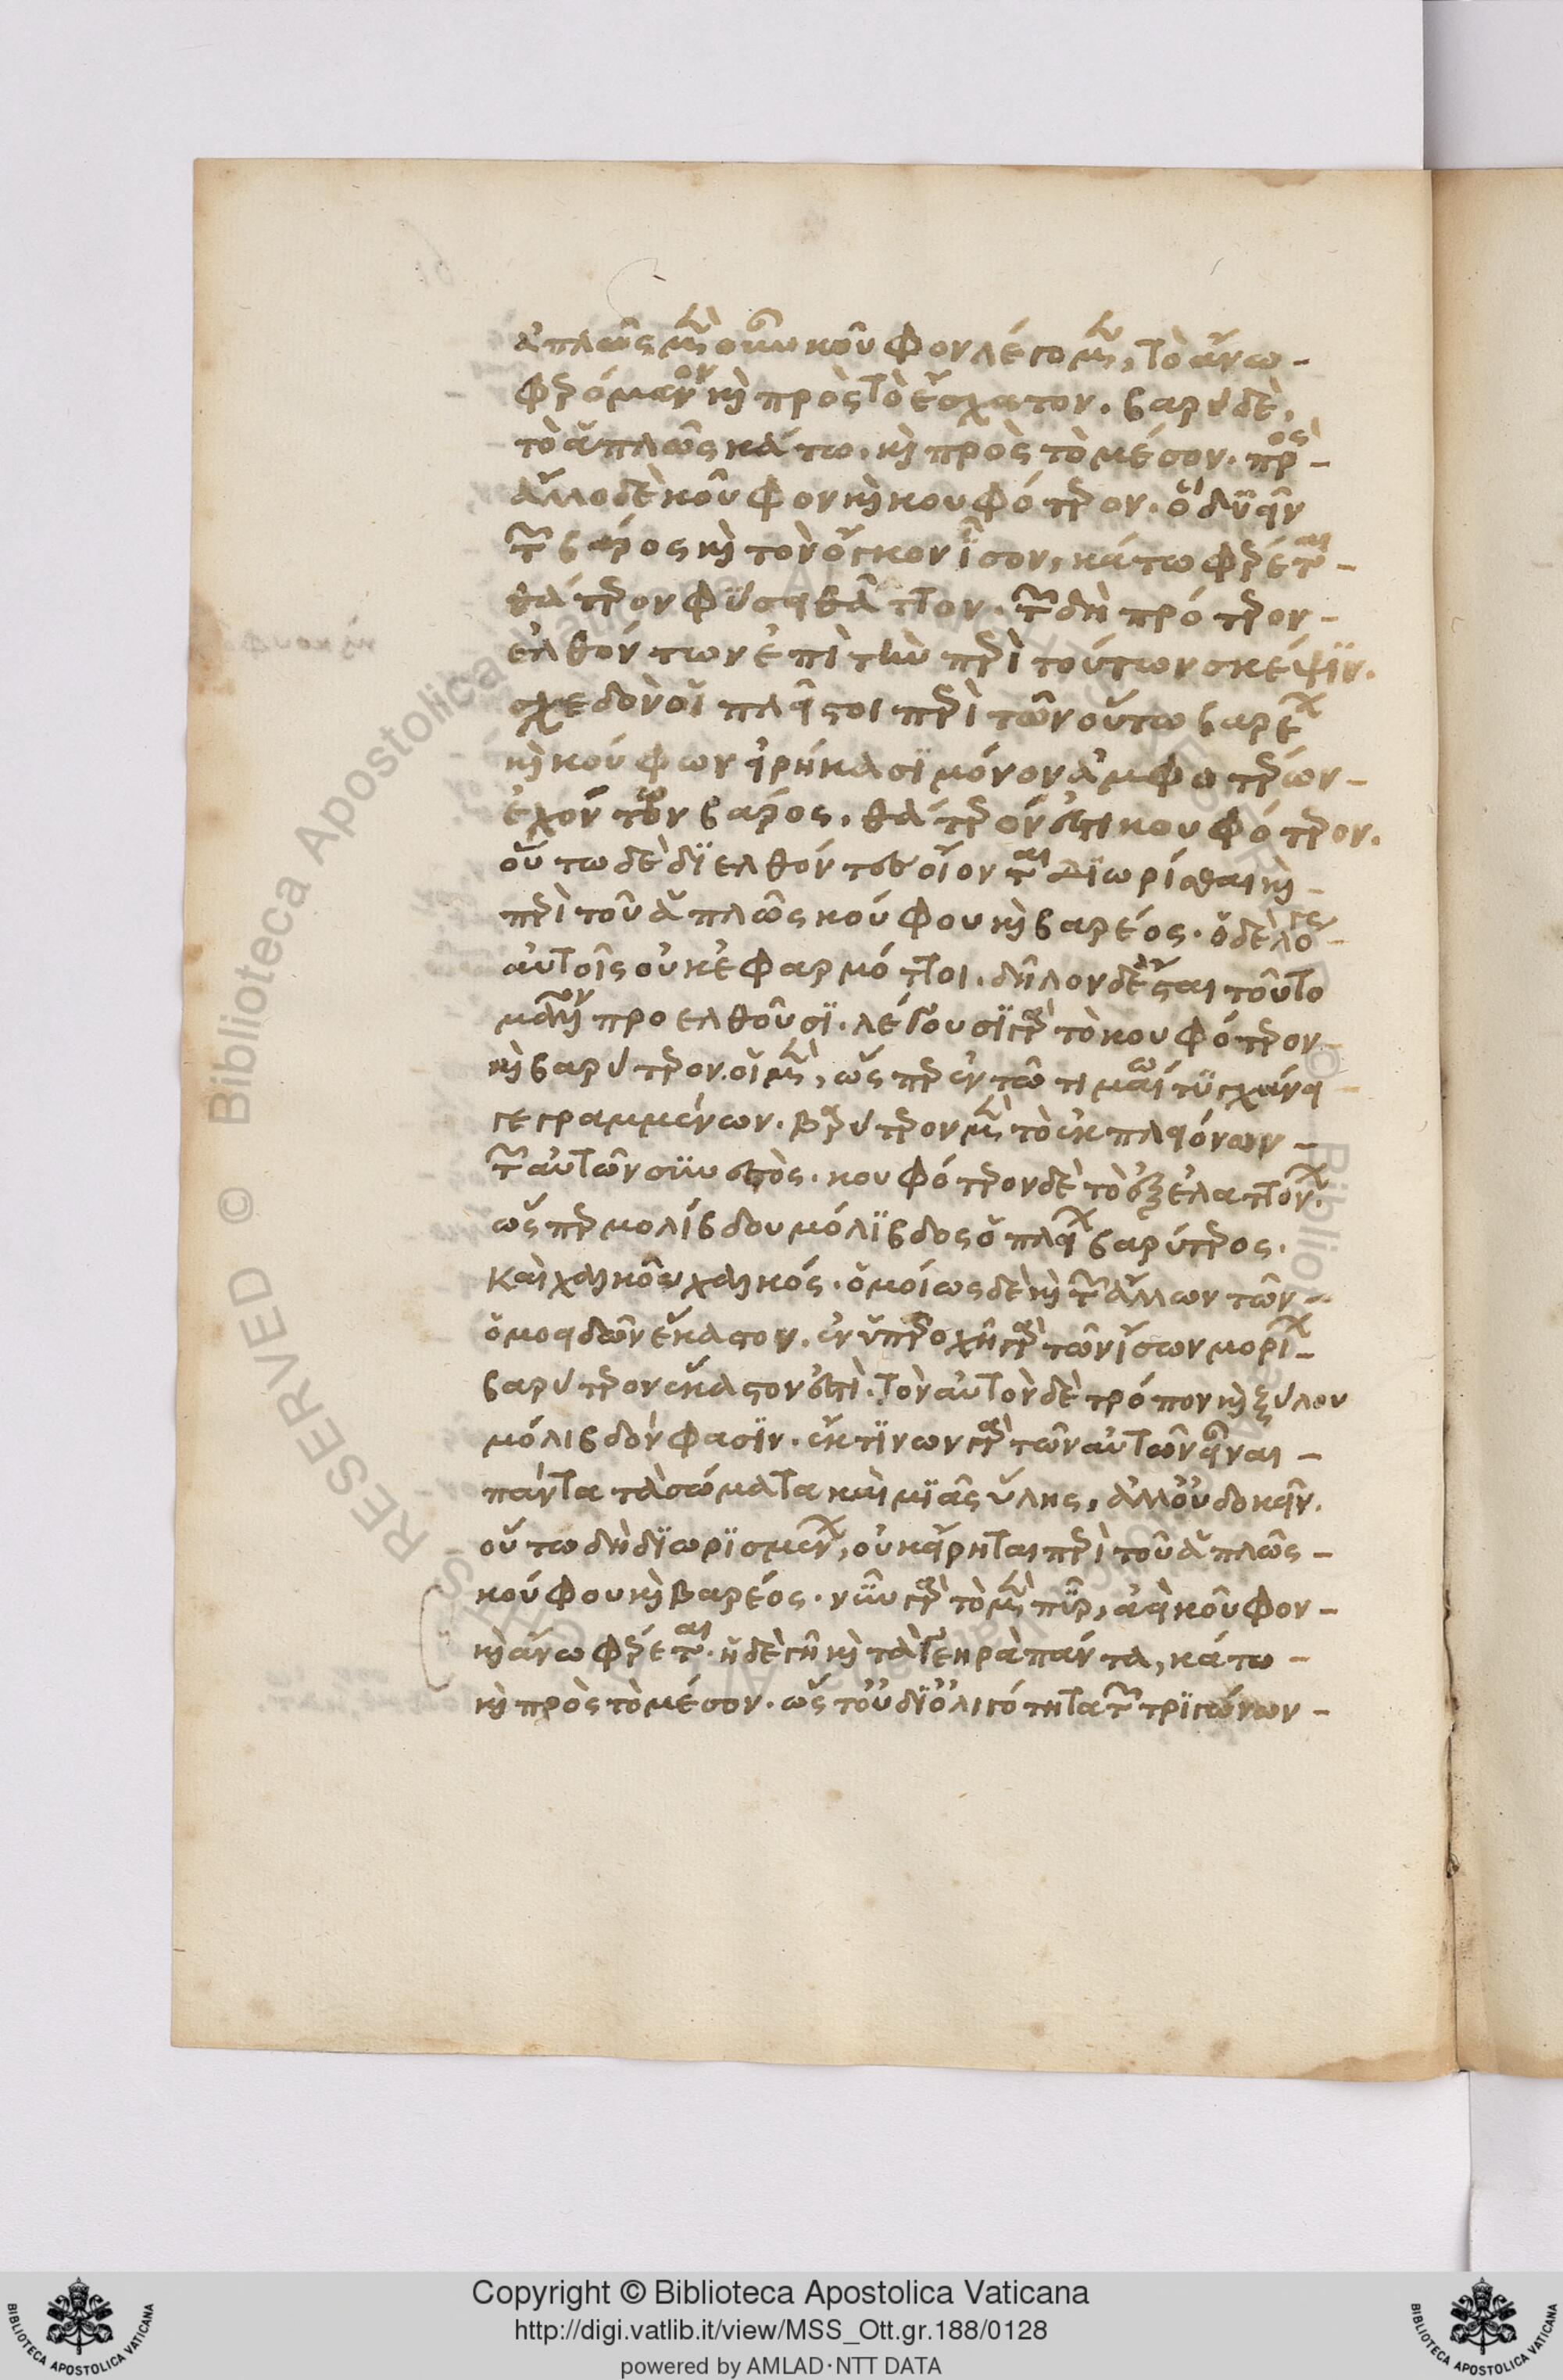 ἁπλῶς μὲν οὖν κοῦφον λέγομεν, τὸ ἄνω
φερόμενον καὶ πρὸς τὸ ἔσχατον. βαρὺ δὲ,
τὸ ἁπλῶς κάτω. καὶ πρὸς τὸ μέσον. πρὸς
ἄλλο δὲ κοῦφον καὶ κουφότερον. ὃ δυεῖν
τῶν βάρος καὶ τὸν ὄγκον ἴσον, κάτω φέρεται
θάτερον φύσει θᾶττον. τῶν δὴ πρότερον
ἐλθόντων ἐπὶ τὴν περὶ τούτων σκέψιν.
σχεδὸν οἱ πλεῖστοι περὶ τῶν οὕτω βαρέων
καὶ κούφων εἰρήκασι μόνον ἀμφοτέρων
ἐχόντων βάρος. θάτερόν ἐστι κουφότερον.
οὕτω δὲ διελθόντες οἴονται διωρίσθαι καὶ
περὶ τοῦ ἁπλῶς κούφου καὶ βαρέος. ὁ δὲ λόγος
αὐτοῖς οὐκ ἐφαρμόττει. δῆλον δ' ἔσται τοῦτο
μᾶλλον προελθοῦσι. λέγουσι γὰρ τὸ κουφότερον
καὶ βαρύτερον. οἱ μὲν, ὥσπερ ἐν τῶ τιμαίω τυγχάνει
γεγραμμένων. βαρύτερον μὲν τὸ ἐκ πλειόνων
τῶν αὐτῶν συνεστὸς. κουφότερον δὲ τὸ ἐξ ἐλαττόνων.
ὥσπερ μολίβδου μόλιβδος ὁ πλείων βαρύτερος.
καὶ χαλκοῦ χαλκός. ὁμοίως δὲ καὶ τῶν ἄλλων τῶν
ὁμοειδῶν ἕκαστον. ἐν ὑπεροχῆ γὰρ τῶν ἴσων μορίων
βαρύτερον ἕκαστον ἐστὶ. τὸν αὐτὸν δὲ τρόπον καὶ ξύλου
μόλιβδόν φασιν. ἔκ τινων γὰρ τῶν αὐτῶν εἶναι
πάντα τὰ σώματα καὶ μιᾶς ὕλης, ἀλλ' οὐ δοκεῖν.
οὕτω δὴ διωρισμένων, οὐκ εἴρηται περὶ τοῦ ἁπλῶς
κούφου καὶ βαρέος. νῦν γὰρ τὸ μὲν πῦρ, ἀεὶ κοῦφον
καὶ ἄνω φέρεται. ἡ δὲ γῆ καὶ τὰ γεηρὰ πάντα, κάτω
καὶ πρὸς τὸ μέσον. ὥστ' οὐ δι' ὀλιγότητα τῶν τριγώνων
Copyright © Biblioteca Apostolica Vaticana
http://digi.vatlib.it/view/MSS_Ott.gr.188/0128
powered by AMLAD·NTT DATA